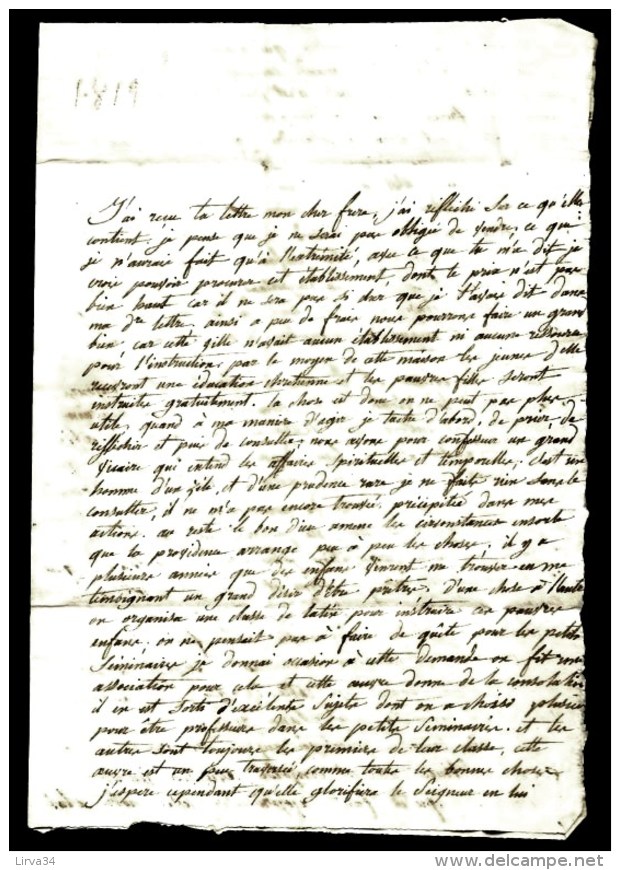 1819
J'ai reçu ta lettre mon cher frere, j'ai réfléchi sur ce qu'elle
contient, je pense que je ne serai pas obligée de vendre, ce que
je n'aurais fait qu'à l'extremité, avec ce que tu m'a dit je
crois pouvoir procurer cet établissement, dont le prix n'est pas
bien haut car il ne sera pas si cher que je t'avais dit dans
ma dre lettre, ainsi a peu de frais nous pourrons faire un grand
bien car cette ville n'avait aucun établissement ni aucune ressource
pour l'instruction, par le moyen de cette maison les jeunes d'elle
recevront une éducation chretienne et les pauvres filles seront
instruites gratuitement. la chose est donc on ne peut pas plus
utile, quand à ma maniere d'agir je tache d'abord, de prier, de
réfléchir et puis de consulter, nous avons pour confesseur un grand
vicaire qui entend les affaires spirituelles et temporelles, c'est un
homme d'un zéle, et d'une prudence rare je ne fais rien sans le
consulter, il ne m'a pas encore trouvée précipitée dans mes
actions. au reste le bon dieu amene les circonstances ensorte
que la providence arrange peu à peu les choses, il y a
plusieurs années que des enfans vinrent me trouver en me
temoignant un grand désir d'être prêtres. d'une chose à l'autre
on organisa une classe de latin pour instruire ces pauvres
enfans. on ne pensait pas à faire de quête pour les petits
séminaires je donnai occasion à cette demande on fit une
association pour cela et cette œuvre donne de la consolation
il en est sorti d'excélens sujets dont on a choisi plusieurs
pour être professeurs dans les petits séminaires. et les
autres sont toujours les premiers de leur classe, cette
œuvre est un peu traversée comme toutes les bonnes choses
j'espere cependant qu'elle glorifiera le Seigneur en lui
Lirva34
delcampe.net